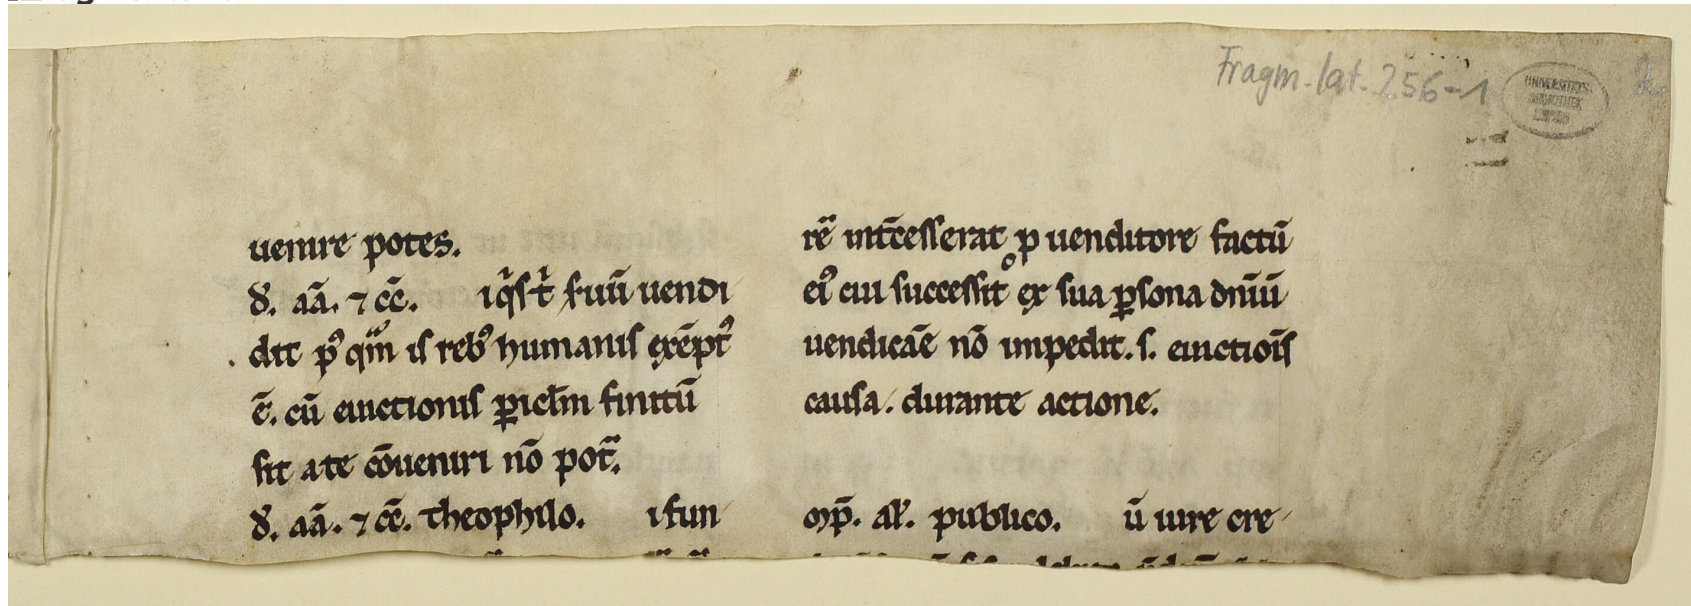 Fragm. lat. 256-1
UNIVERSITÄTS
BIBLIOTHEK
uenire potes.
d̾. aā. ⁊ cc̄. iq̄s t̾ ſuū uendi
dit p̾ꝰ qm̄ iſ rebꝰ humaniſ exēptꝰ
ē. cū euictioniſ ꝑiclm̄ finitū
ſit a te cōueniri nō pot̄.
d̾. aā. ⁊ cc̄. theophilo. i fun
rē int̄ceſſerat p uenditore factū
eiꝰ cui ſucceſſit ex ſua ꝑſona dn̄iū
uendicāe nō impedit. ſ. euictiōiſ
cauſa. durante actione.
Imꝑ. al̾. publico. ū iure cre